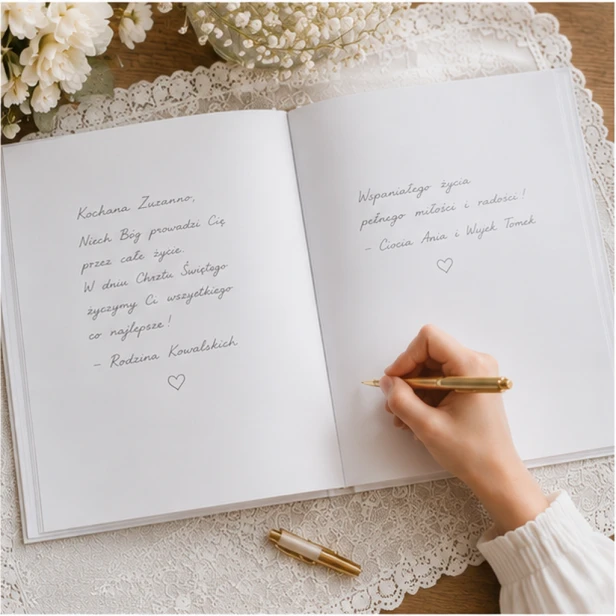 Kochana Zuzanno,
Niech Bóg prowadzi Cię
przez całe życie.
W dniu Chrztu Świętego
życzymy Ci wszystkiego
co najlepsze!
– Rodzina Kowalskich
Wspaniałego życia
pełnego miłości i radości!
– Ciocia Ania i Wujek Tomek